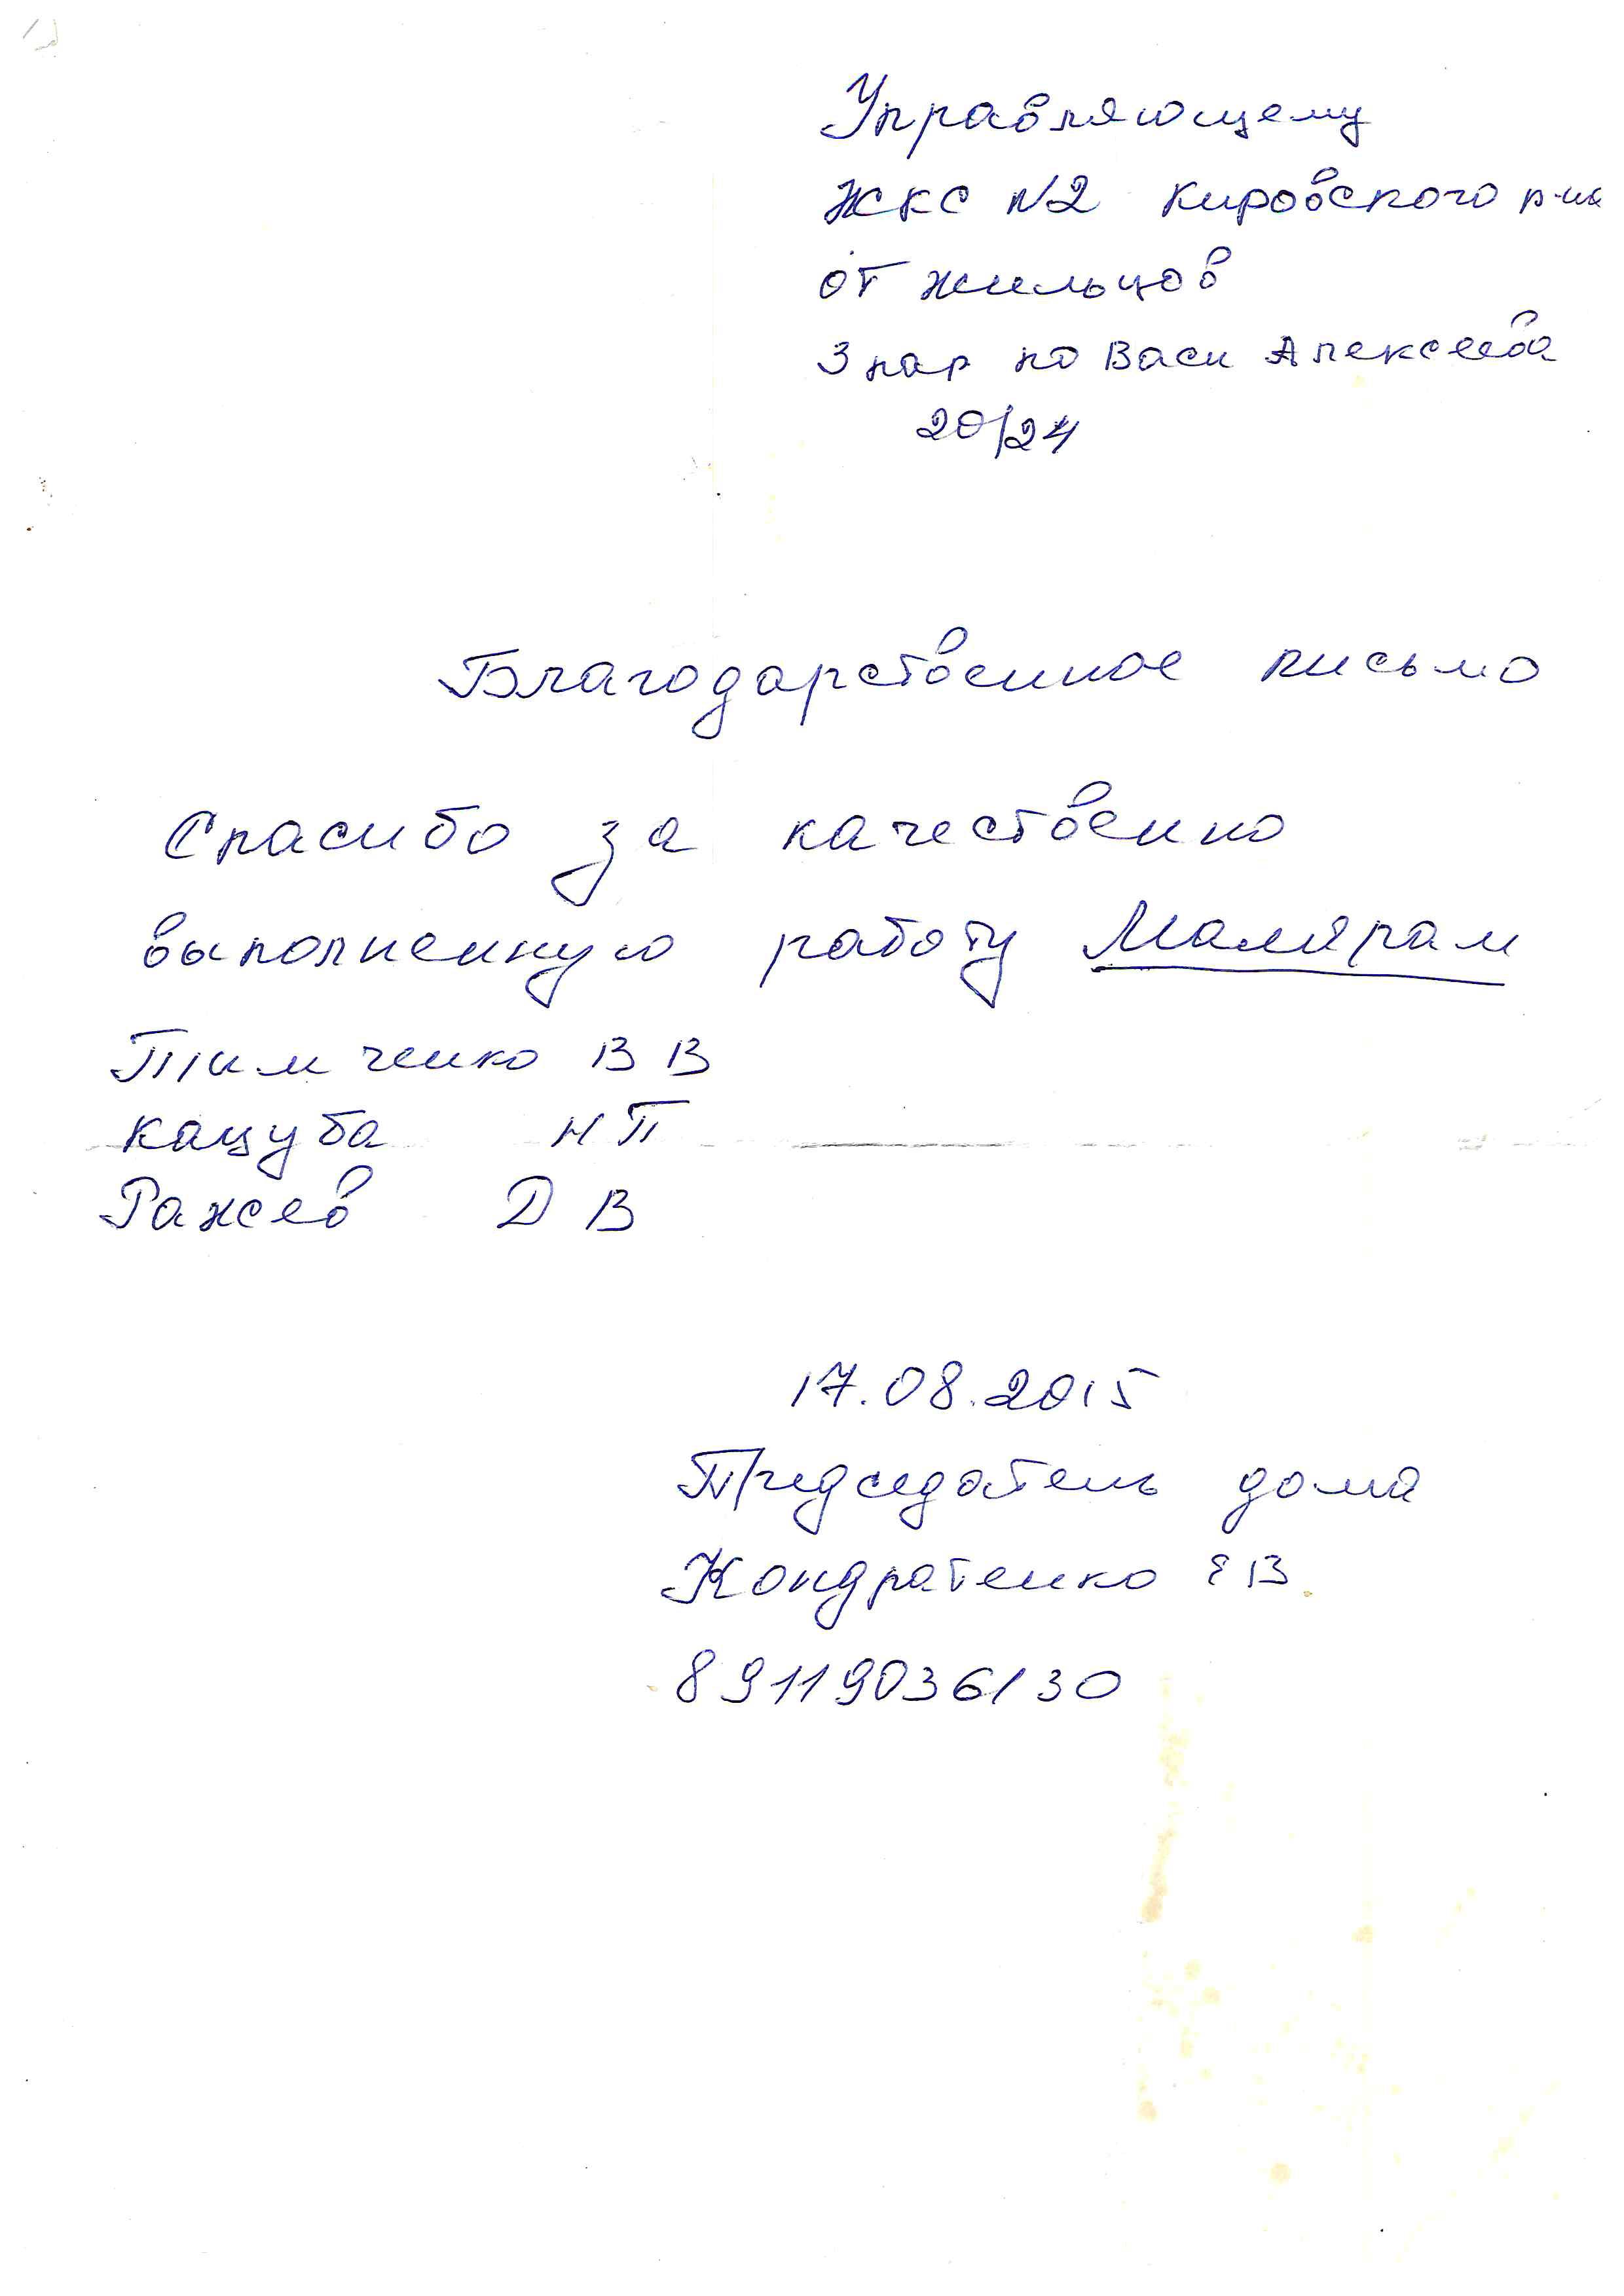 Управляющему
ЖКС N2 Кировского р-на
от жильцов
3 пар по Васи Алексеева
20/24
Благодарственное письмо
Спасибо за качественно
выполненную работу Малярам
Тимченко В В
Кацуба Н П
Ражев Д В
17.08.2015
Председатель дома
Кондратенко Е В
89119036130